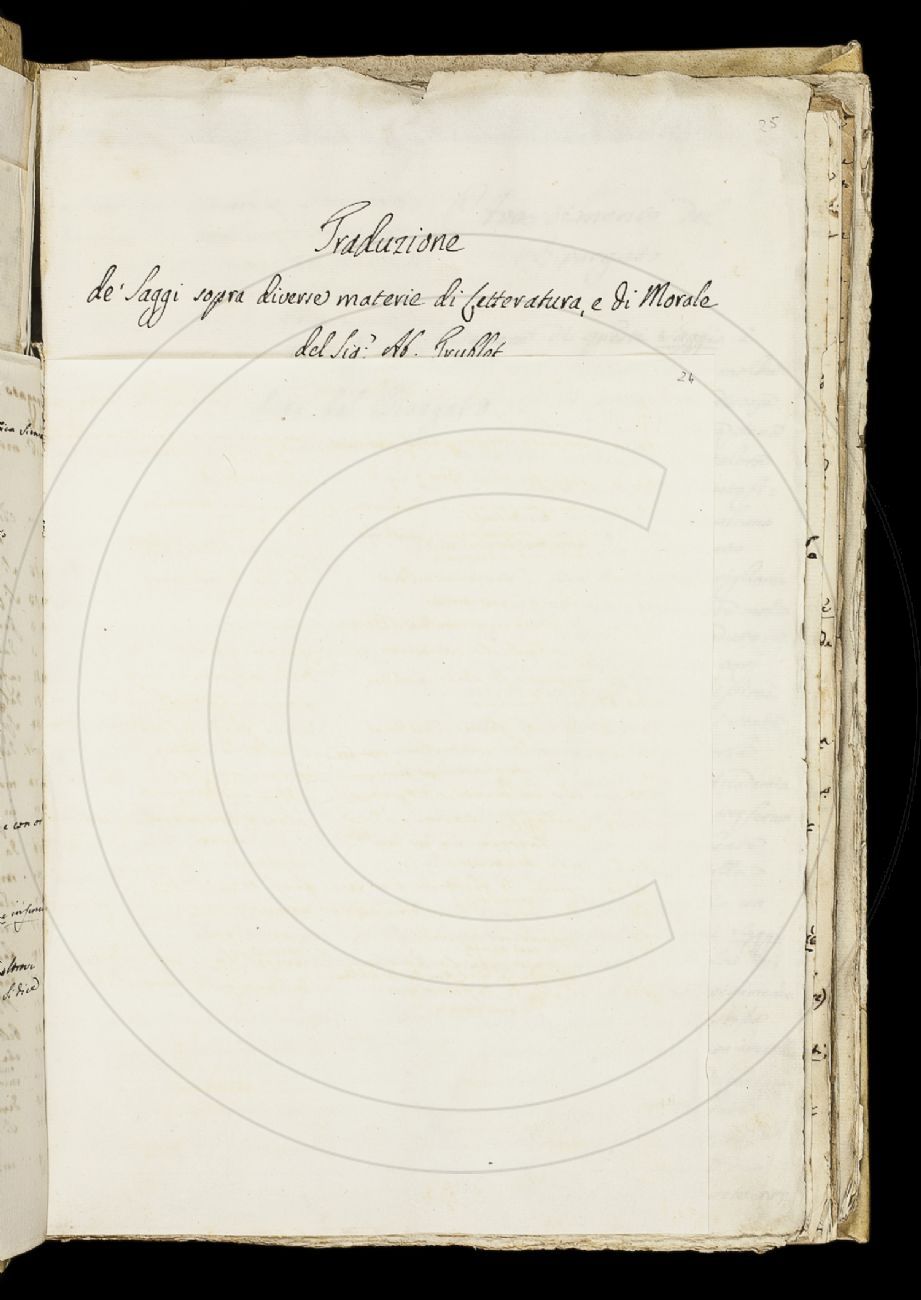 25
Traduzione
de' Saggi sopra diverse materie di Letteratura, e di Morale
del Sig.r Ab. Trublet
24
e con